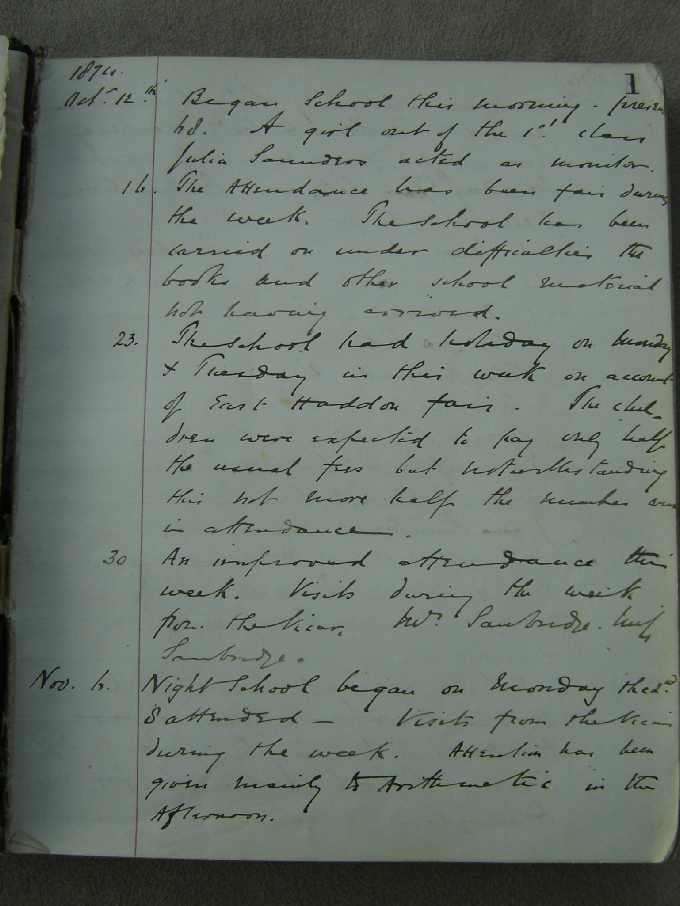 1
1874.
Oct. 12.th Began School this morning. present
68. A girl out of the 1st class
Julia Saunders acted as monitor.
16. The Attendance has been fair during
the week. The School has been
carried on under difficulties the
books and other school material
not having arrived.
23. The School had holiday on Monday
& Tuesday in this week on account
of East Haddon fair. The chil-
dren were expected to pay only half
the usual fees but notwithstanding
this not more half the number were
in attendance.
30 An improved attendance this
week. Visits during the week
from the Vicar, Mrs. Sawbridge. Miss
Sawbridge.
Nov. 6. Night School began on Monday the 2nd
8 attended — Visits from the Vicar
during the week. Attention has been
given mainly to Arithmetic in the
Afternoon.